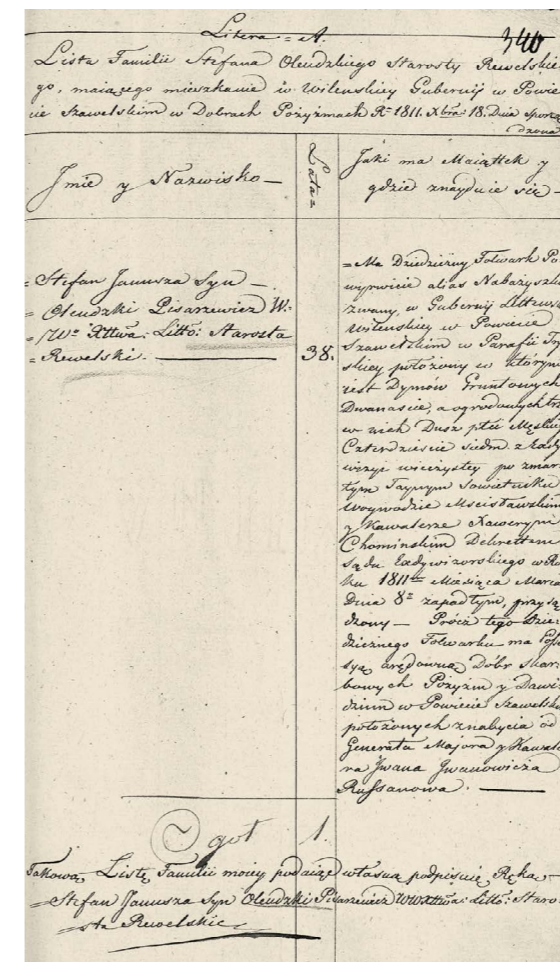 Litera = A.
340
Lista Familii Stefana Olendzkiego Starosty Rewelskie
go, maiącego mieszkanie w Wilenskiey Gubernij w Powie
cie Szawelskim w Dobrach Pożyzmach R= 1811. Xbra 18. Dnia sporzą
dzona
Jmie y Nazwisko —
Lata =
Jaki ma Maiątek y
gdzie znayduie się —
= Stefan Janusza Syn —
= Olendzki Pisarzewicz W:
= W° Xttwa: Litto: Starosta
= Rewelski. —
38.
= Ma Dziedziczny Folwark Po
wyrwicie alias Nabażyszk
zwany, w Gubernij Littews
Wilenskiey w Powiecie
Szawelskim w Parafii
skiey położony w którym
iest Dymów Gruntowych
Dwanaście, a ogrodowych trz
w nich Dusz płci Męskiey
Czterdzieście siedm. z
wieczystey po zmar
łym Taynym Sowietniku
Woywodzie Mscisławskim
y Kawalerze Xawerym
Chominskim Dekrettem
Sądu Exdywizorskiego w Ro
ku 1811 Miesiąca Marca
Dnia 8= zapadłym, przysą
dzony — Prócz tego Dzie
dzicznego Folwarku ma Poss
syą arędowną Dóbr skar
bowych Pożyzm y Dawi
dziun w Powiecie Szawelsk
położonych znabycia od
Generała Majora y Kawale
ra Jwana Jwanowicza
Russanowa. —
Ogoł 1.
Takową Listę Familii moiey podaiąc własną podpisuię Ręką —
= Stefan Janusza Syn Olendzki Pisarzewicz WWXttwa: Litto: Staro
= sta Rewelski